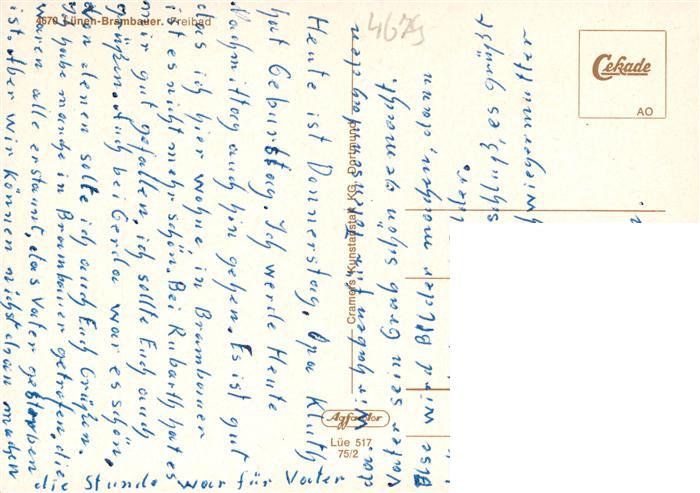 4670 Lünen-Brambauer. Freibad
4679
Cekade
AO
Cramers Kunstanstalt KG, Dortmund
Agfacolor
Lüe 517
75/2
Heute ist Donnerstag, Opa Kluth
hat Geburtstag. Ich werde Heute
Nachmittag auch hin gehen. Es ist gut
das ich hier wohne in Brambauer
ist es nicht mehr schön. Bei Rubarth hat es
mir gut gefallen, ich sollte Euch auch
grüßen. Auch bei Gerda war es schön,
von denen sollte ich auch Euch Grüßen.
Ich habe manche in Brambauer getroffen, die
waren alle erstaunt, das Vater gestorben
ist. Aber wir können nichts dran machen
die Stunde war für Vater
da. Wir haben
Vater sein Grab schön gemacht.
Else wird Bilder machen, dann
der.
schluß, es grüßt
wiegermutter